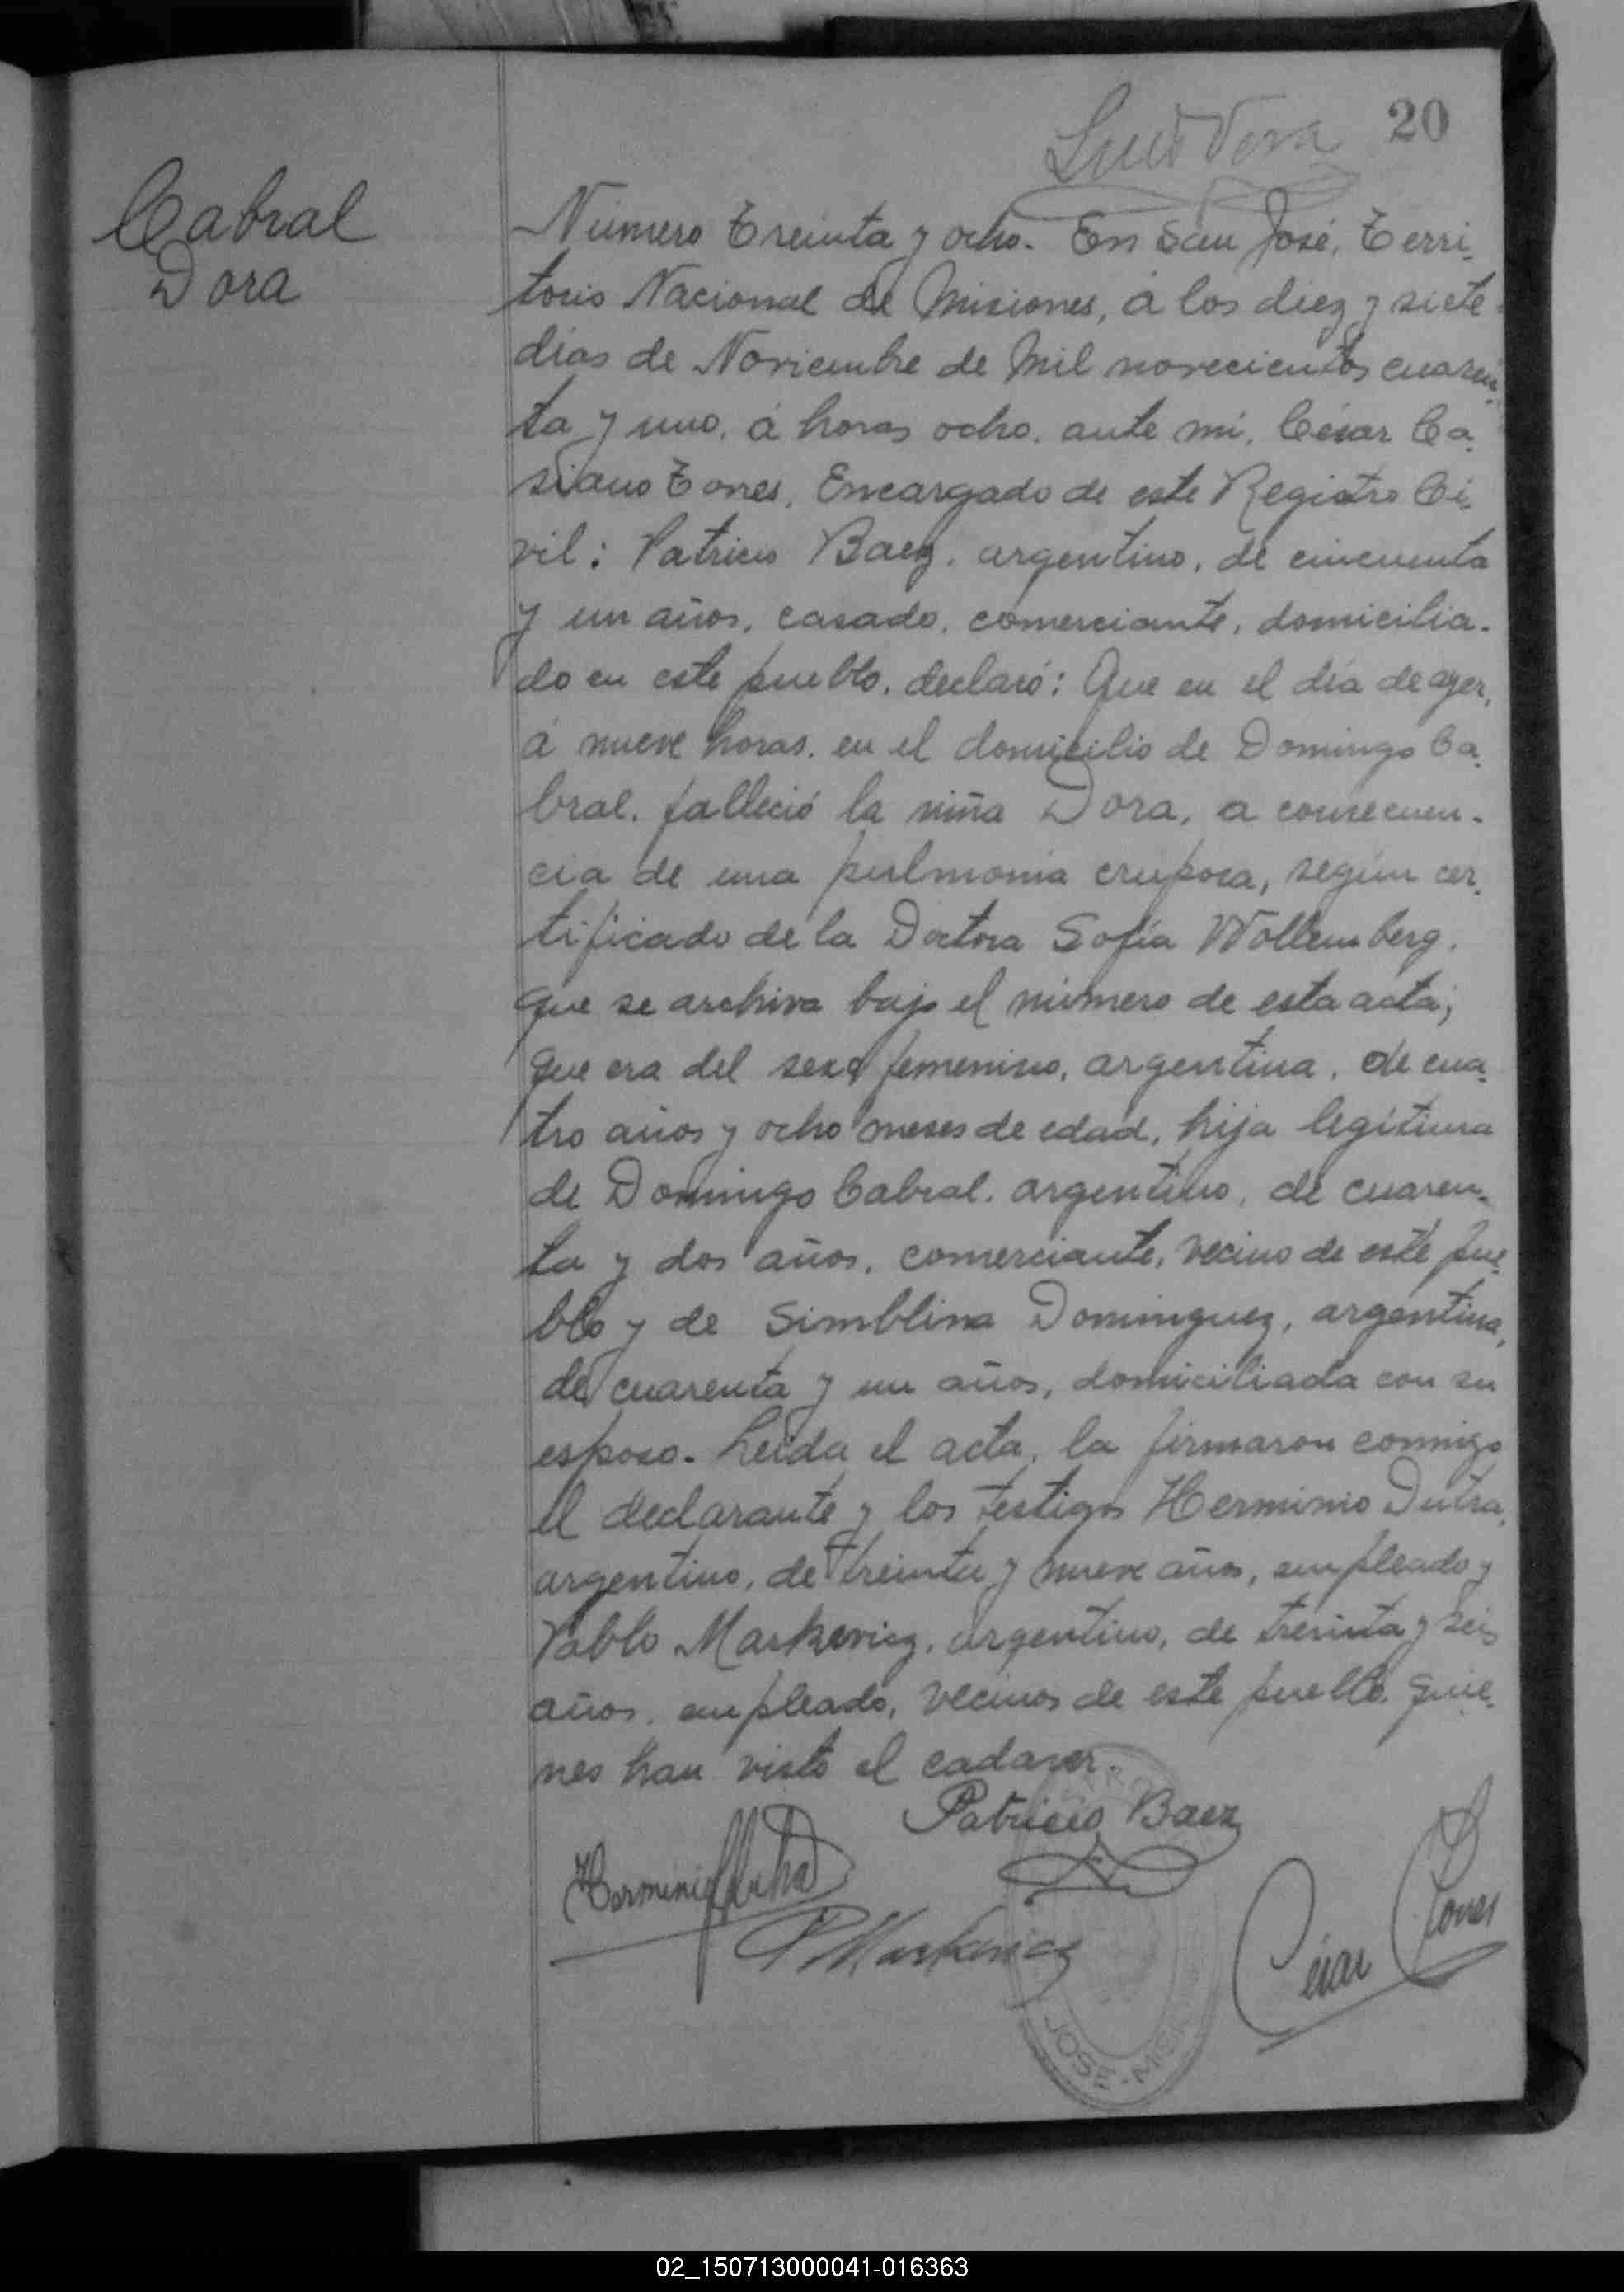 20
Luis Vera
Cabral
Dora
Número Treinta y ocho. En San José, Terri-
torio Nacional de Misiones, á los diez y siete
días de Noviembre de Mil novecientos cuaren-
ta y uno, á horas ocho, ante mí, César Ca-
siano Torres, Encargado de este Registro Ci-
vil: Patricio Baez, argentino, de cincuenta
y un años, casado, comerciante, domicilia-
do en este pueblo, declaró: Que en el día de ayer,
á nueve horas, en el domicilio de Domingo Ca-
bral, falleció la niña Dora, a consecuen-
cia de una pulmonía cruposa, según cer-
tificado de la Doctora Sofía Wollemberg,
que se archiva bajo el número de esta acta;
que era del sexo femenino, argentina, de cua-
tro años y ocho meses de edad, hija legítima
de Domingo Cabral, argentino, de cuaren-
ta y dos años, comerciante, vecino de este pue-
blo y de Simblina Dominguez, argentina,
de cuarenta y un años, domiciliada con su
esposo. Leída el acta, la firmaron conmigo
el declarante y los testigos Herminio Dutra,
argentino, de treinta y nueve años, empleado y
Pablo Markevicz, argentino, de treinta y seis
años, empleado, vecinos de este pueblo, quie-
nes han visto el cadaver.
Patricio Baez
Herminio Dutra
P Markevicz
César C Torres
JOSE - MISIONES
02_150713000041-016363